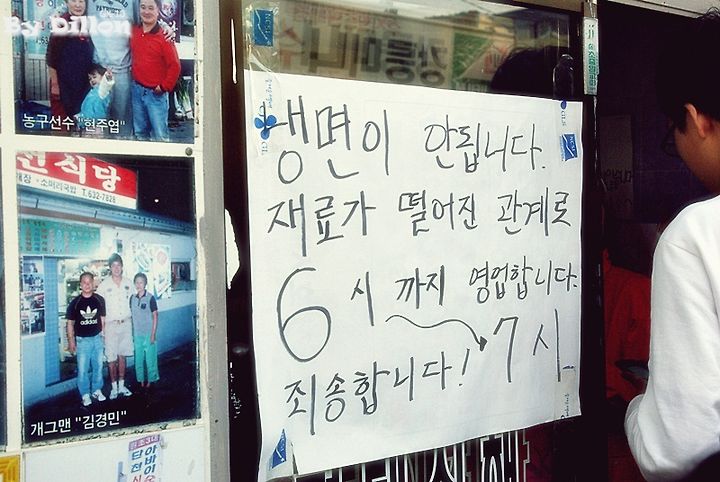 By. Dillon
농구선수 "현주엽"
식당
소머리국밥 T.632-7828
개그맨 "김경민"
냉면이 안됩니다.
재료가 떨어진 관계로
6시 까지 영업합니다.
7시
죄송합니다!
아바이
단천